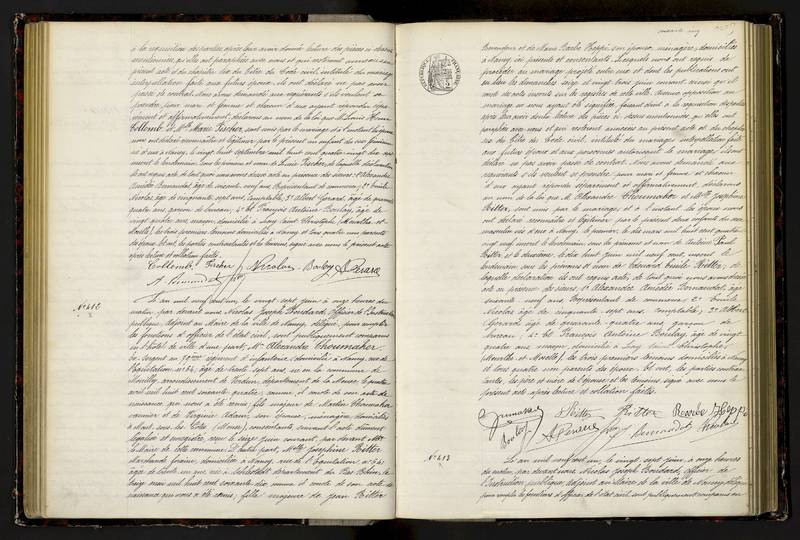 à la réquisition des parties, après leur avoir donné lecture des pièces ci dessus
mentionnées, qu'elles ont paraphées avec nous et qui resteront annexées au
présent acte et du chapitre six du titre du Code civil, intitulé du mariage
interpellation faite aux futurs époux, ils ont déclaré ne pas avoir
passé de contrat. Nous avons demandé aux requérants s'ils veulent se
prendre pour mari et femme et chacun d'eux ayant répondu sépa-
rément et affirmativement, déclarons au nom de la loi que M. Louis Henri
Collomb et Mlle Marie Fischer, sont unis par le mariage et à l'instant les époux
nous ont déclaré reconnaître et légitimer par le présent un enfant du sexe féminin
né d'eux à Nancy, le vingt huit septembre mil huit cent quatre-vingt dix neuf
inscrit le lendemain sous les prénoms et nom de Louise Fischer, de laquelle déclaration
ils ont requis acte, de tout quoi nous avons dressé acte en présence des sieurs: 1° Alexandre
Amédée Bernardat, âgé de soixante neuf ans, Représentant de commerce; 2° Emile
Nicolas, âgé de cinquante sept ans, Comptable; 3° Albert Gérard, âgé de quarante
quatre ans, garçon de bureau; 4° et François Antoine Boulay, âgé de
vingt quatre ans, maçon, domicilié à Lay Saint Christophe, (Meurthe et
Moselle), les trois premiers témoins domiciliés à Nancy et tous quatre non parents
des époux. Et ont, les parties contractantes et les témoins, signé avec nous le présent acte
après lecture et collation faites.
Collomb Fischer Nicolas Boulay A Gérard
A Bernardat
N° 412
L'an mil neuf cent un, le vingt sept juin à onze heures du
matin, par devant nous Nicolas Joseph Boudard, Officier de l'Instruction
publique, adjoint au Maire de la ville de Nancy, délégué, pour remplir
les fonctions d'officier de l'état civil, sont publiquement comparus
en l'hôtel de ville d'une part, Mr. Alexandre Thoumaker
Sergent au
domicilié à Nancy, rue de
l'Equitation n° 64, âgé de trente sept ans, né en la commune de
arrondissement de Verdun, département de la Meuse, le quatre
avril mil huit cent soixante quatre, comme il conste de son acte de
naissance, qui nous a été remis; fils majeur de Martin Thoumaker
et de Virginie Adam, son épouse, ménagère, domiciliés
à (Meuse), consentants suivant l'acte dûment
légalisé et enregistré, reçu le seize juin courant, par devant Mr.
le Maire de cette commune. D'autre part, Mlle Joséphine Ritter
Marchande foraine, domiciliée à Nancy, rue de l'Equitation, n° 64
âgée de trente un ans, née à Schlestadt, département du Bas Rhin, le
mil huit cent soixante dix, comme il conste de son acte de
naissance qui nous a été remis; fille majeure de Jean Ritter
et de Marie Barbe Heppi, son épouse, ménagère, domiciliés
à Nancy, ici présents et consentants. Lesquels nous ont requis de
procéder au mariage projeté entre eux et dont les publications ont
eu lieu les dimanches seize et vingt trois juin courant, ainsi qu'il
conste des actes inscrits sur les registres de cette ville. Aucune opposition au
mariage ne nous ayant été signifiée, faisant droit à la réquisition des parties
après leur avoir donné lecture des pièces ci dessus mentionnées, qu'elles ont
paraphées avec nous et qui resteront annexées au présent acte et du chapitre
six du titre du Code civil, intitulé du mariage, interpellation faite
aux futurs époux et aux personnes autorisant le mariage, ils ont
déclaré ne pas avoir passé de contrat. Nous avons demandé aux
requérants s'ils veulent se prendre pour mari et femme et chacun
d'eux ayant répondu séparément et affirmativement, déclarons
au nom de la loi que M. Alexandre Thoumaker et Mlle Joséphine
Ritter, sont unis par le mariage et à l'instant les époux nous
ont déclaré reconnaître et légitimer par le présent deux enfants du sexe
masculin nés d'eux à Nancy, le premier, le dix mars mil huit cent quatre
vingt neuf, inscrit le lendemain, sous les prénoms et nom de
Ritter et le deuxième, le dix huit juin mil neuf cent, inscrit le
lendemain sous les prénoms et nom de Edouard Emile Ritter, de
laquelle déclaration ils ont requis acte, de tout quoi nous avons dressé
acte en présence des sieurs: 1° Alexandre Amédée Bernardat, âgé
soixante neuf ans Représentant de commerce; 2° Emile
Nicolas, âgé de cinquante sept ans, comptable; 3° Albert
Gérard, âgé de quarante quatre ans, garçon de
bureau; 4° et François Antoine Boulay, âgé de vingt
quatre ans, maçon, domicilié à Lay Saint Christophe,
(Meurthe et Moselle), les trois premiers témoins domiciliés à Nancy
et tous quatre non parents des époux. Et ont, les parties contrac-
tantes, les père et mère de l'épouse et les témoins, signé avec nous le
présent acte après lecture et collation faites.
Ritter Ritter Heppi
Boulay A Gérard Bernardat Nicolas
N° 413
L'an mil neuf cent un, le vingt sept juin, à onze heures
du matin, par devant nous Nicolas Joseph Boudard, officier de
l'Instruction publique, adjoint au Maire de la ville de Nancy, délégué
pour remplir les fonctions d'officier de l'état civil, sont publiquement comparus en